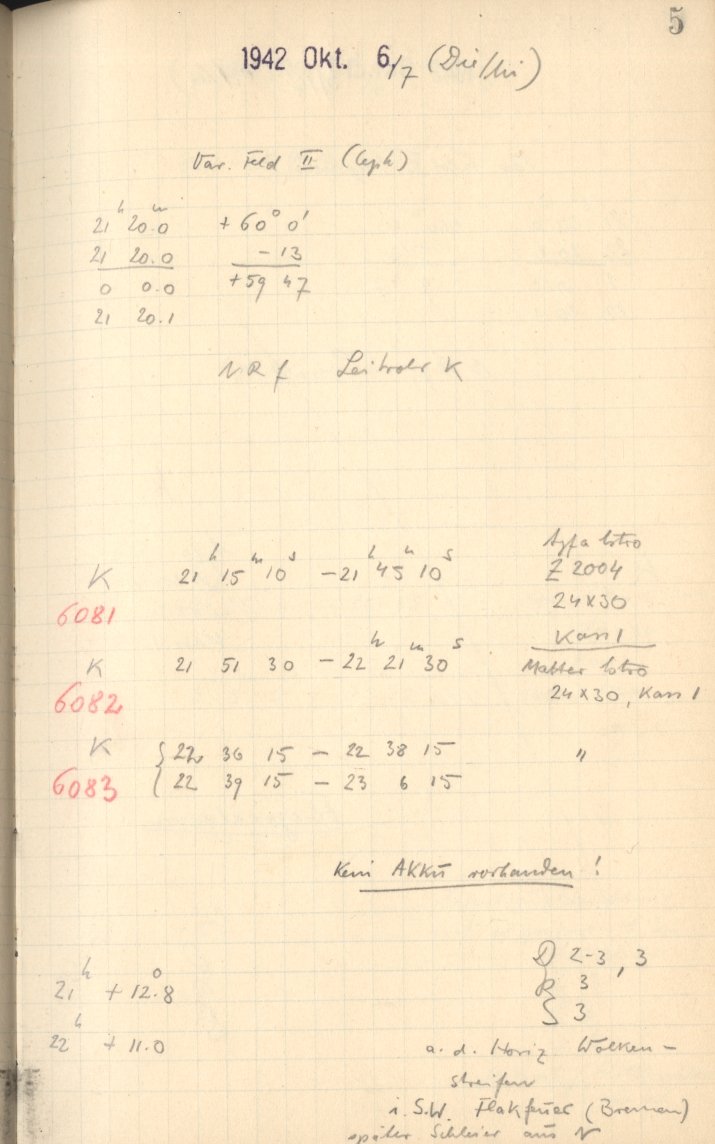 5
1942 Okt. 6./7 (Die/Mi)
Var. Feld II (Ceph)
21ʰ 20.0ᵐ + 60° 0'
21 20.0 - 13
0 0.0 + 59 47
21 20.1
N R f Leitrohr K
Agfa Astro
K 21ʰ 15ᵐ 10ˢ - 21ʰ 45ᵐ 10ˢ Z 2004
6081 24x30
Kass 1
K 21 51 30 - 22ʰ 21ᵐ 30ˢ Matter Astro
6082 24x30, Kass 1
K { 22 36 15 - 22 38 15 "
6083 { 22 39 15 - 23 6 15
Kein Akku vorhanden !
D 2-3, 3
21ʰ + 12.8° R 3
S 3
22ʰ + 11.0
a. d. Horiz Wolken-
streifen
i. S.W. Flakfeuer (Bremen)
später Schleier aus N